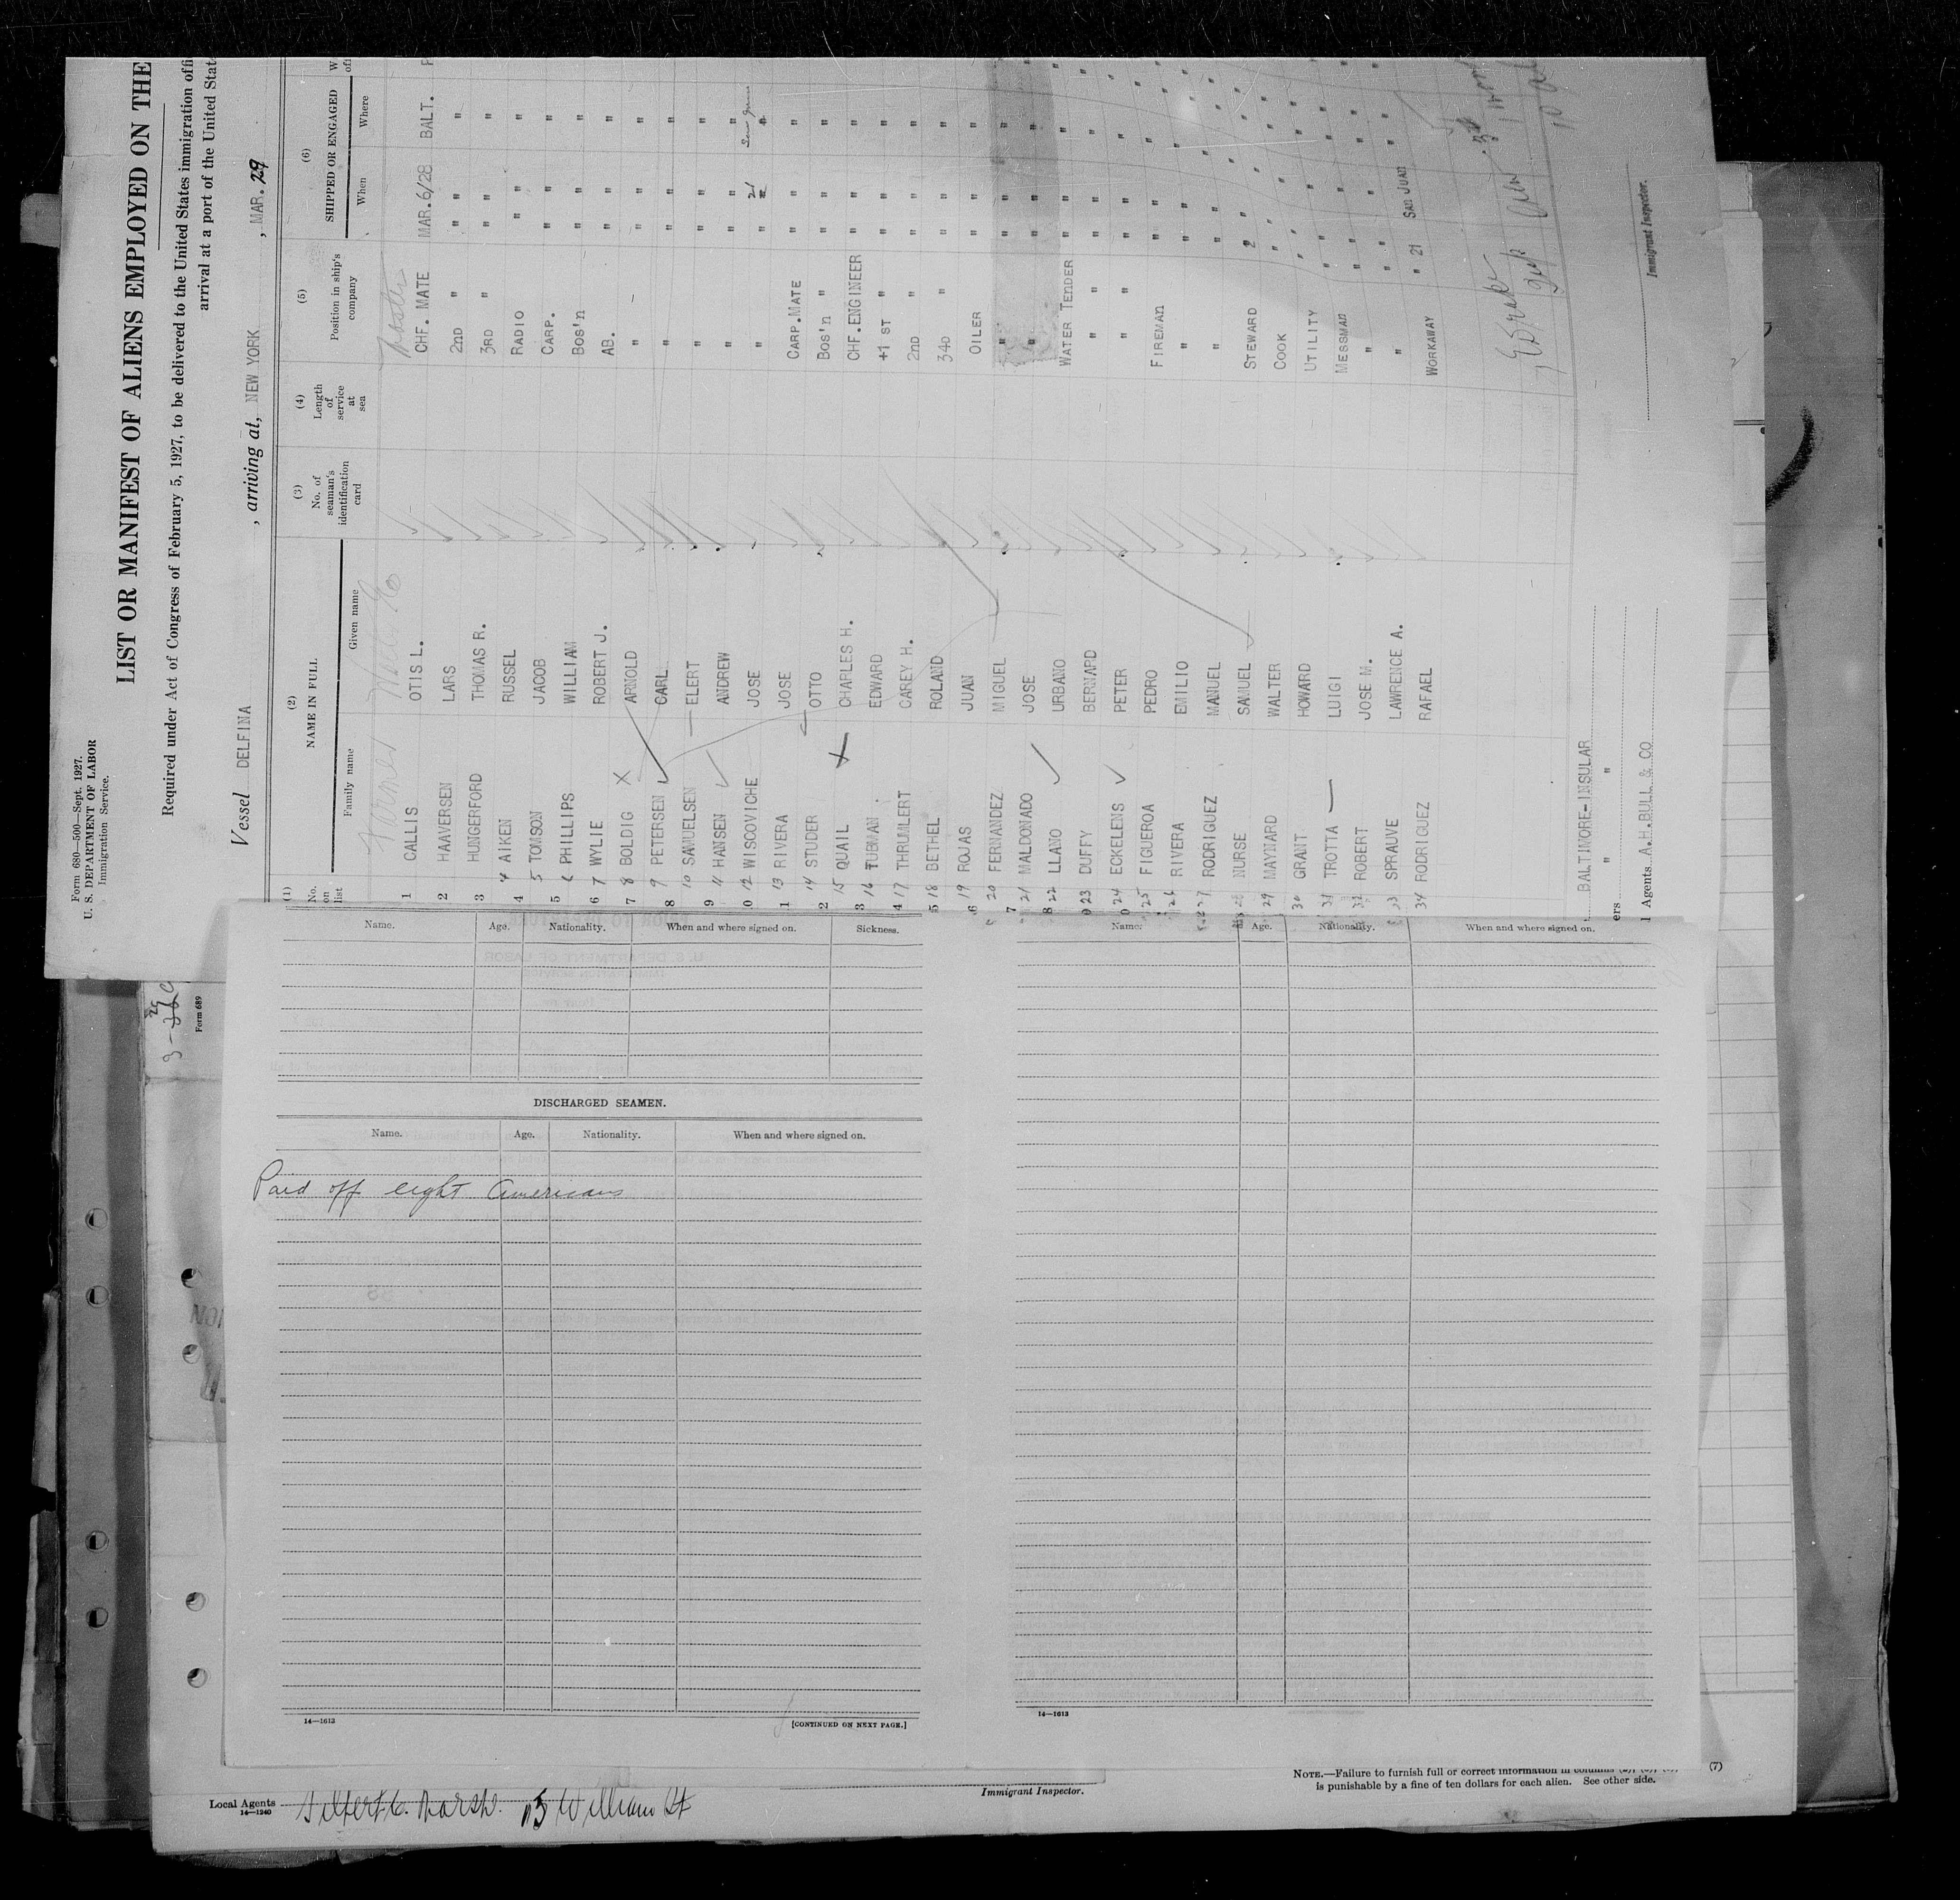 Form 680—500—Sept. 1927.
U. S. DEPARTMENT OF LABOR
Immigration Service.
LIST OR MANIFEST OF ALIENS EMPLOYED ON THE
Required under Act of Congress of February 5, 1927, to be delivered to the United States immigration offi
arrival at a port of the United Stat
Vessel DELFINA , arriving at, NEW YORK , MAR. 29
(1) (2) (3) (4) (5) (6)
No. on list NAME IN FULL No. of seaman's identification card Length of service at sea Position in ship's company SHIPPED OR ENGAGED
Family name Given name When Where
Master
1 CALLIS OTIS L. CHF. MATE MAR.6/28 BALT.
2 HAAVERSEN LARS 2ND " " " "
3 HUNGERFORD THOMAS R. 3RD " " " "
4 AIKEN RUSSEL RADIO " "
5 TOMSON JACOB CARP. " " "
6 PHILLIPS WILLIAM BOS'N " " "
7 WYLIE ROBERT J. AB. " " "
8 BOLDIG ARNOLD " " " "
9 PETERSEN CARL " " " "
10 SAMUELSEN ELERT " " " "
11 HANSEN ANDREW " " " "
12 WISCOVICHE JOSE " " 21
13 RIVERA JOSE CARP.MATE " " "
14 STUDER OTTO BOS'N " " " "
15 QUAIL CHARLES H. CHF.ENGINEER " " "
16 TUBMAN EDWARD +1 ST " " " "
17 THRUMLERT CAREY H. 2ND " " " "
18 BETHEL ROLAND 3RD " " " "
19 ROJAS JUAN OILER " " "
20 FERNANDEZ MIGUEL " " " "
21 MALDONADO JOSE " " " "
22 LLANO URBANO WATER TENDER " " "
23 DUFFY BERNARD " " " " "
24 ECKELENS PETER " " " " "
25 FIGUEROA PEDRO FIREMAN " " "
26 RIVERA EMILIO " " " "
27 RODRIGUEZ MANUEL " " " "
28 NURSE SAMUEL STEWARD 2 " "
29 MAYNARD WALTER COOK " " "
30 GRANT HOWARD UTILITY " " "
31 TROTTA LUIGI MESSMAN " " "
32 ROBERT JOSE M. " " " "
33 SPRAUVE LAWRENCE A. " " " "
34 RODRIGUEZ RAFAEL WORKAWAY " 21 SAN JUAN
BALTIMORE-INSULAR
" "
ers
l Agents A.H.BULL & CO
Immigrant Inspector.
Form 689
Name. Age. Nationality. When and where signed on. Sickness.
DISCHARGED SEAMEN.
Name. Age. Nationality. When and where signed on.
Paid off eight Americans
14—1613 [CONTINUED ON NEXT PAGE.]
Name. Age. Nationality. When and where signed on.
14—1613
Immigrant Inspector.
NOTE.—Failure to furnish full or correct information in columns
is punishable by a fine of ten dollars for each alien. See other side.
(7)
Local Agents William St
14—1240